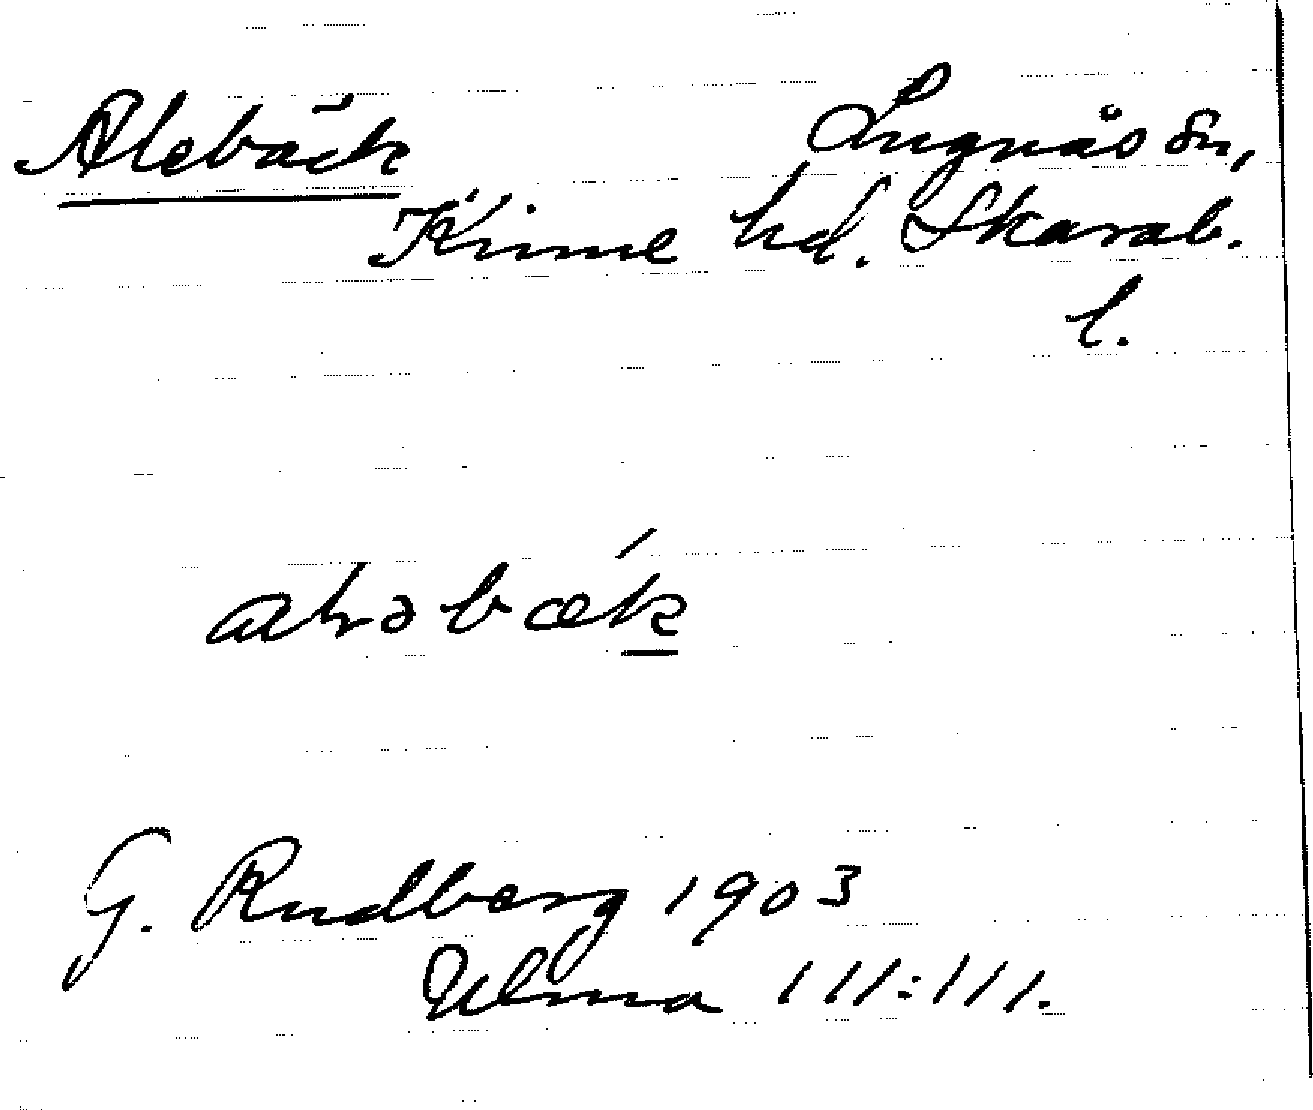 Alebäck Lugnås sn,
Kinne hd. Skarab.
l.
alrəbæk
G. Rudberg 1903
Ulma 111:111.